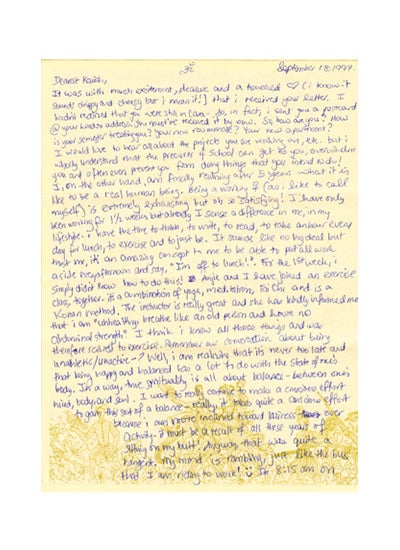 ॐ
September 18, 1997.
Dearest
It was with much excitement, pleasure and a touched ♡ (i know it
sounds drippy and cheesy but i mean it!) that i received your letter. I
hadn't realized that you were still in so, in fact, i sent you a postcard
@ your London address. You must've received it by now. So, how are you? How
is your semester treating you? Your new roommate? Your new apartment?
I would love to hear all about the projects you are working on, etc. but i
wholly understand that the pressures of school can get to you, overwhelm
you and often even prevent you from doing things that you intend to do!
I, on the other hand, am finally realizing after 5 years what it is
like to be a real human being. Being a working (as i like to call
myself) is extremely exhausting but oh so satisfying! I have only
been working for 1½ weeks but already I sense a difference in me, in my
lifestyle. i have the time to think, to write, to read, to take an hour every
day for lunch, to exercise and to just be. It sounds like no big deal but
trust me, it's an amazing concept to me to be able to put all work
aside every afternoon and say, "I'm off to lunch!!" For the 1st week, i
simply didn't know how to do this! Angie and I have joined an exercise
class together. it's a combination of yoga, meditation, Tai Chi and is a
Korean method. The instructor is really great and she has kindly informed me
that i am "unhealthy: breathe like an old person and have no
abdominal strength." I think i knew all those things and was
therefore scared to exercise. Remember our conversation about being
unathletic/inactive-? Well, i am realizing that it's never too late and
that being happy and balanced has a lot to do with the state of one's
body. In a way, true spirituality is all about balance - between one's
mind, body and soul. I want to really continue to make a conscious effort
to gain this sort of a balance - really, it takes quite a conscious effort
because i am more inclined toward laziness over
activity - it must be a result of all these years of
sitting on my butt! Anyway, that was quite a
tangent. my mind is rambling, just like the bus
that I am riding to work! ☺ It's 8:15 am on